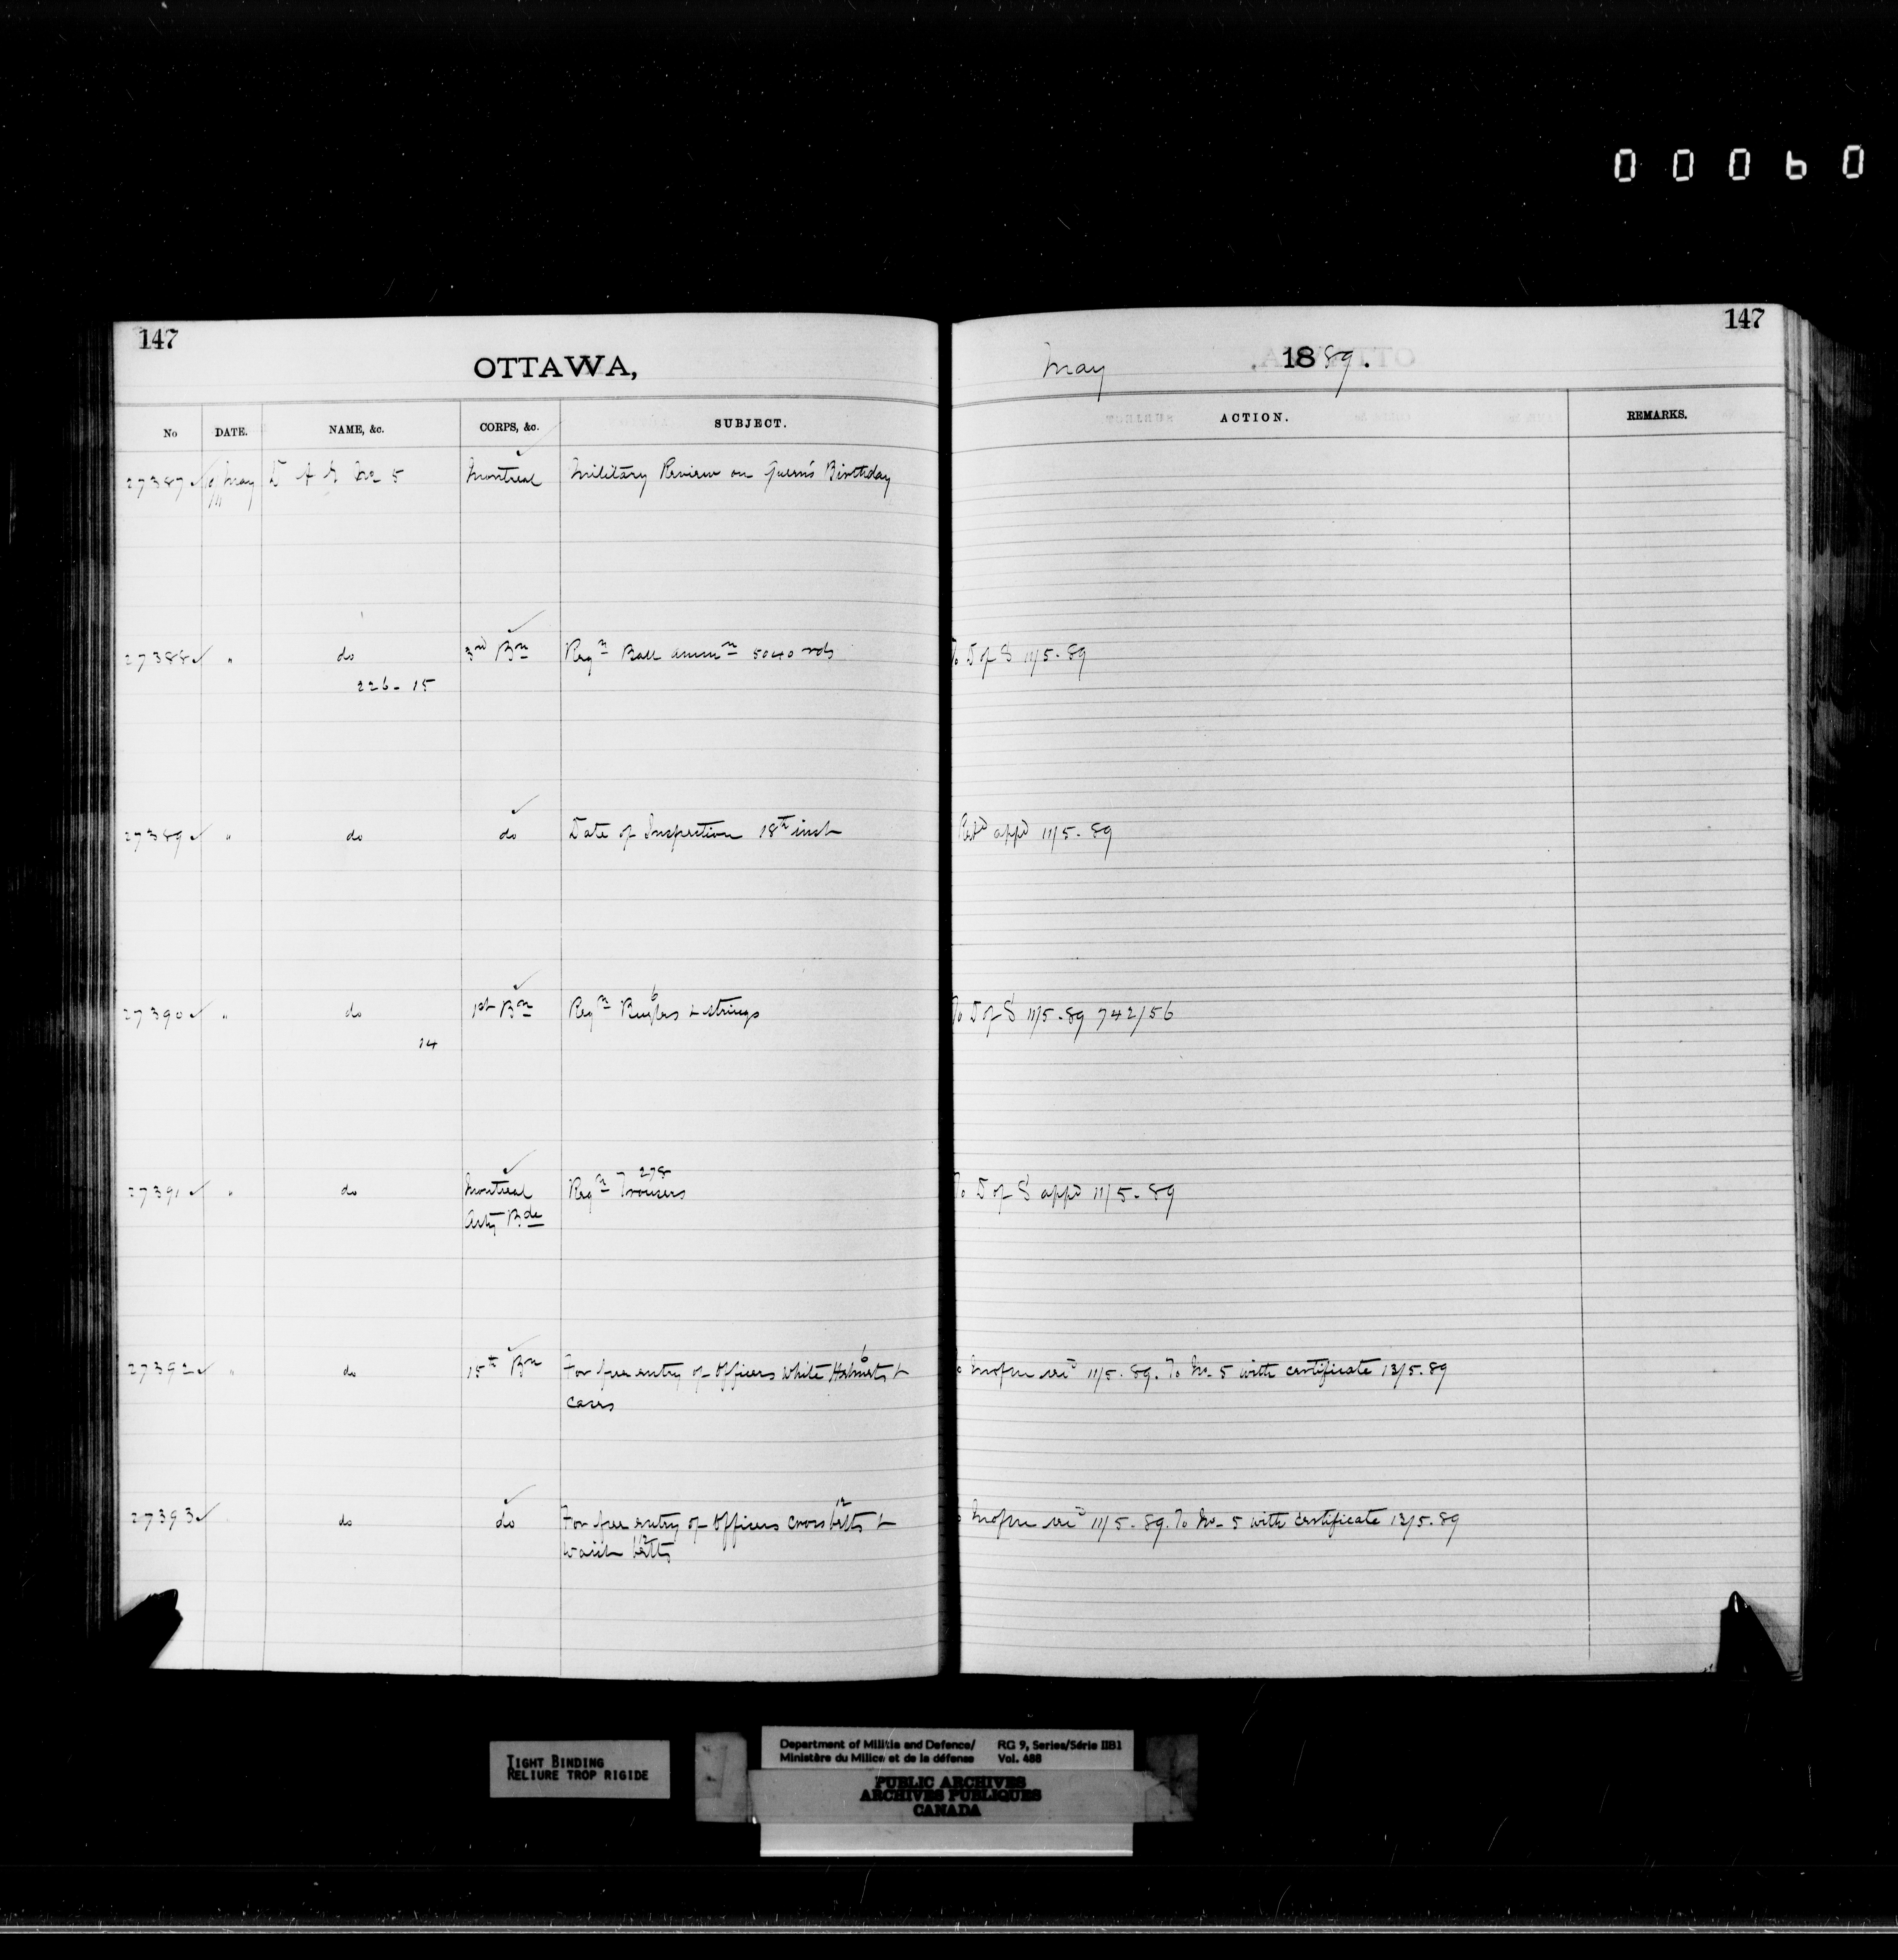 00060
147
OTTAWA,
May 1889.
147
No DATE. NAME, &c. CORPS, &c. SUBJECT. ACTION. REMARKS.
27387 ✓ May D A G No 5 Montreal Military Review on Queen's Birthday
27388 ✓ " do 3rd Bn Reqn Ball ammn 5040 rds To D of S 11/5-89
226-15
27389 ✓ " do do Date of Inspection 18th inst Retd appd 11/5-89
6
27390 ✓ " do 1st Bn Reqn Bugles & strings To D of S 11/5-89 742/56
14
278
27391 ✓ " do Montreal Reqn Trousers To D of S appd 11/5-89
Arty Bde
6
27392 ✓ " do 15th Bn For free entry of Officers white Helmets & 11/5-89. To No-5 with certificate 13/5-89
cases
12
27393 ✓ do do For free entry of Officers cross belts & 11/5-89. To No-5 with certificate 13/5-89
12
waist belts
TIGHT BINDING
RELIURE TROP RIGIDE
Department of Militia and Defence/ RG 9, Series/Série IIB1
Ministère du Milice et de la défense Vol. 488
PUBLIC ARCHIVES
ARCHIVES PUBLIQUES
CANADA